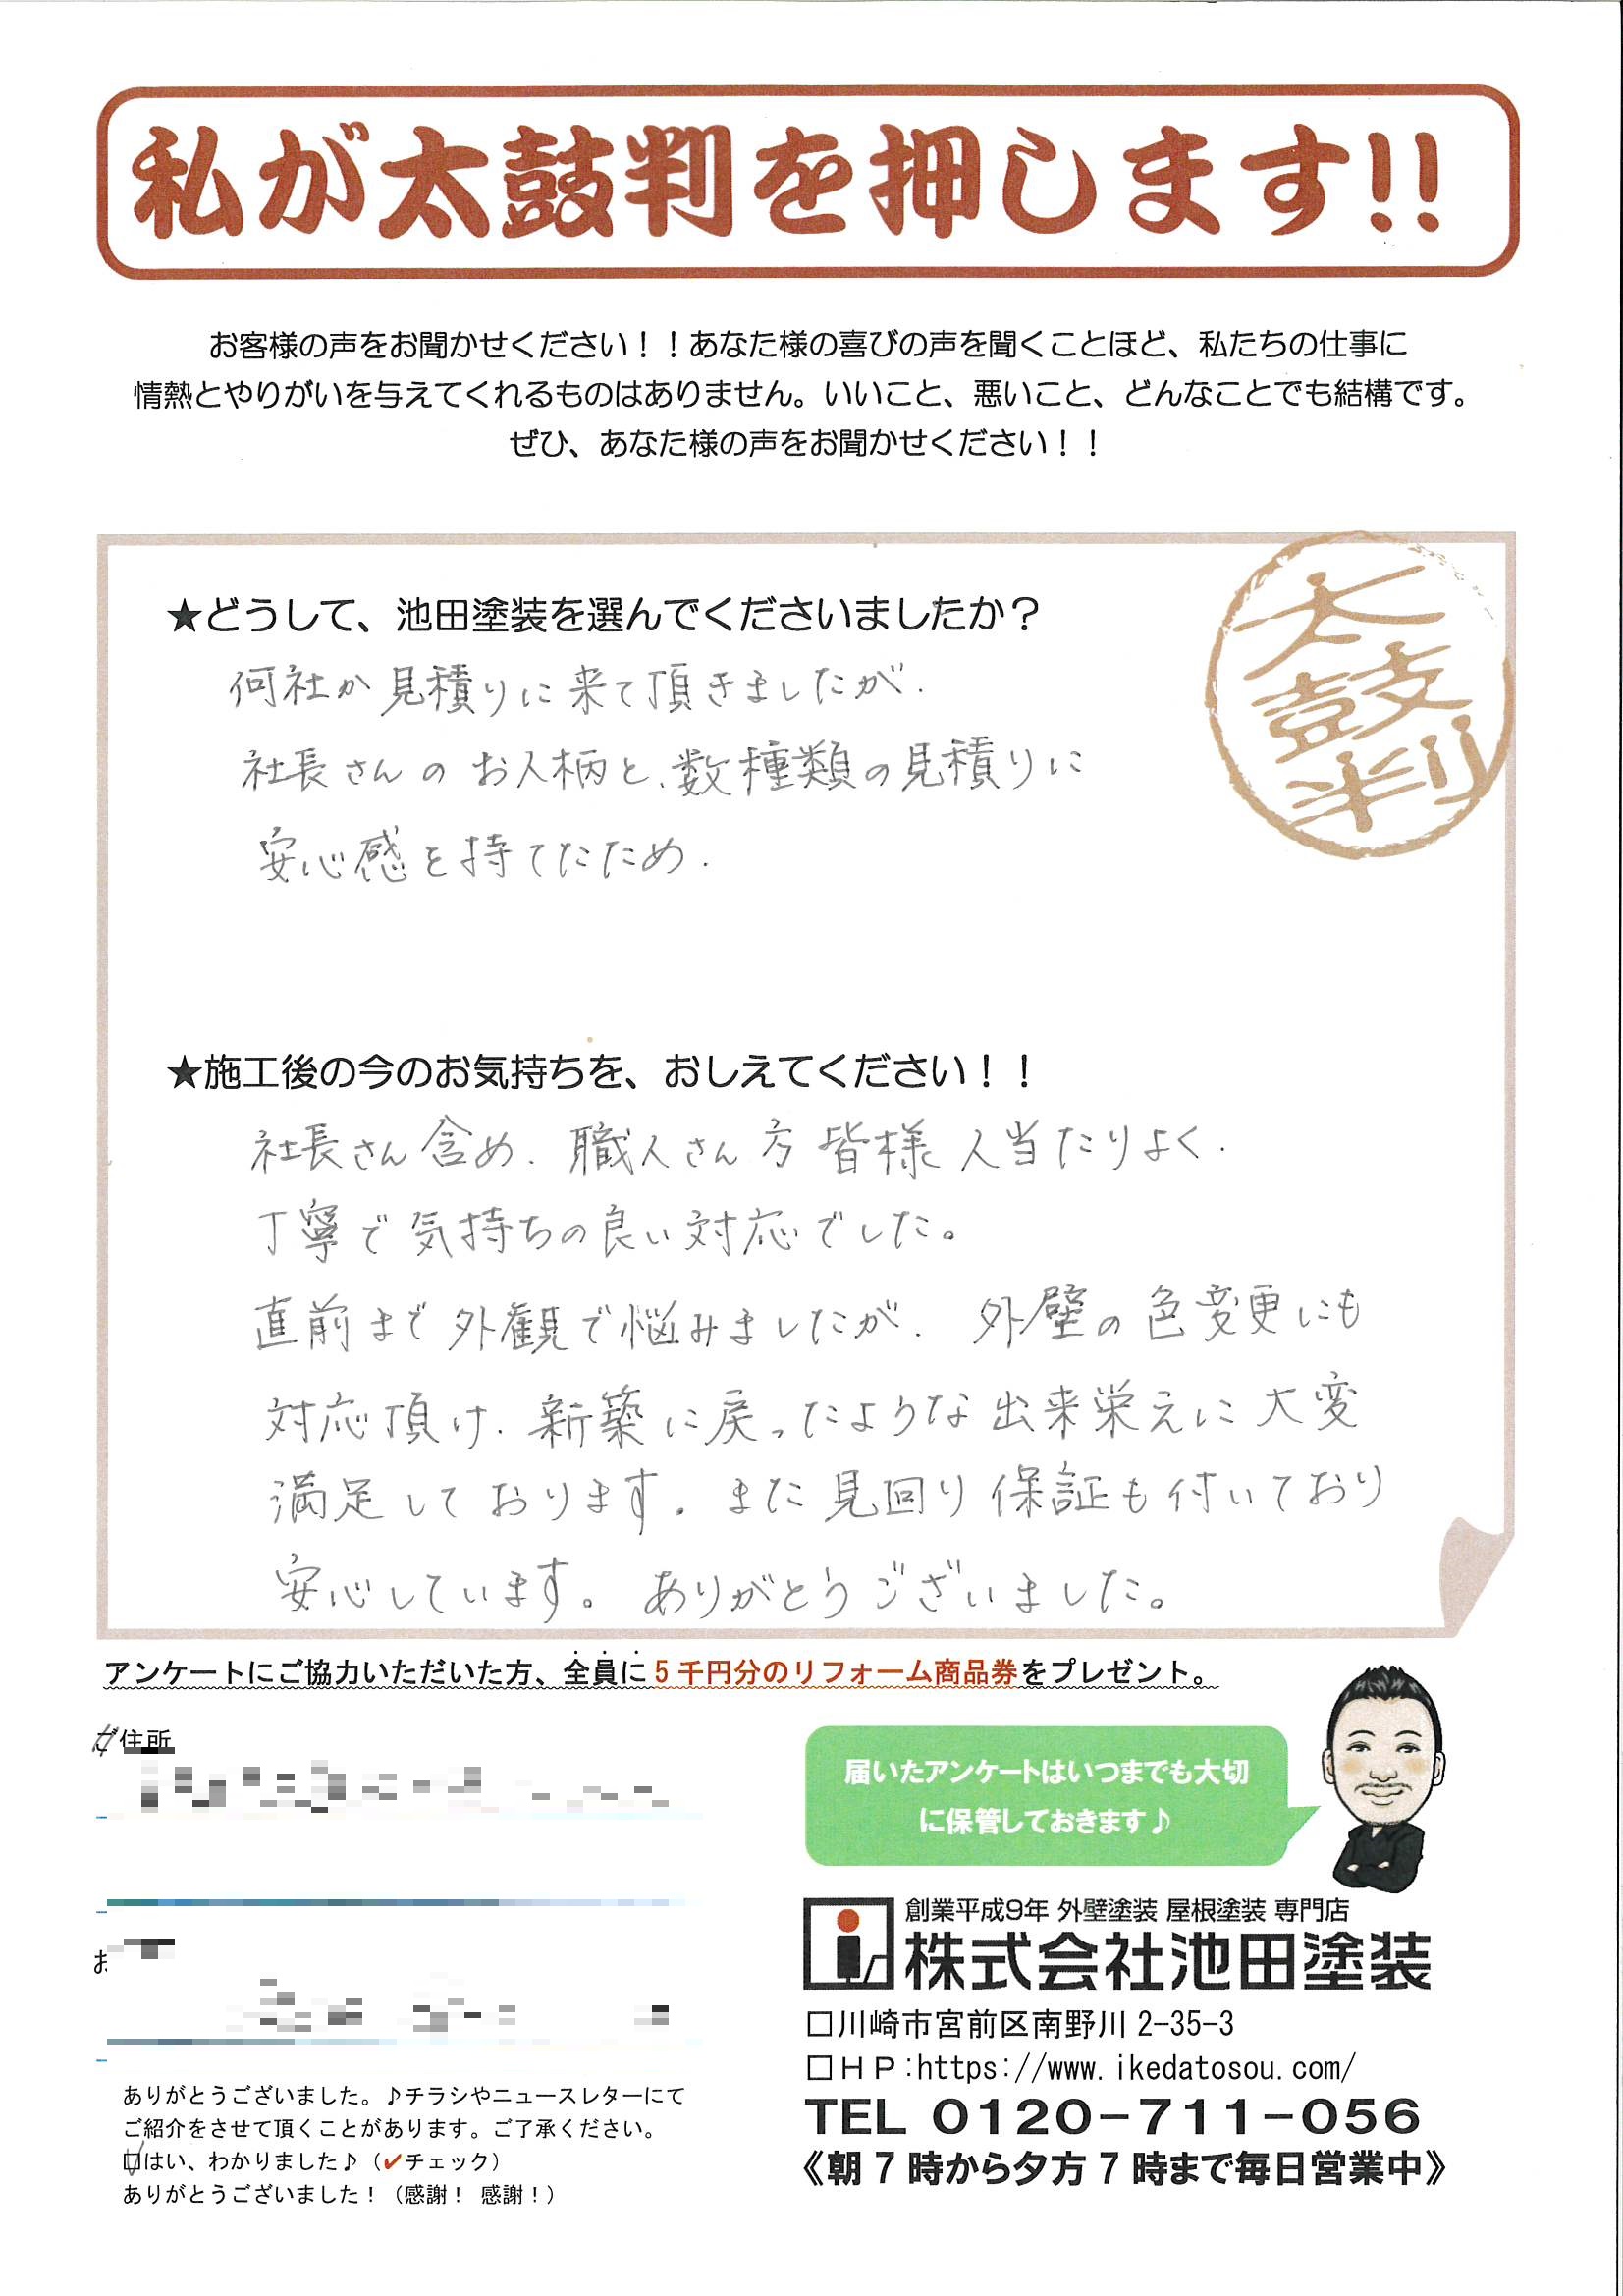 私が太鼓判を押します!!
お客様の声をお聞かせください！！あなた様の喜びの声を聞くことほど、私たちの仕事に
情熱とやりがいを与えてくれるものはありません。いいこと、悪いこと、どんなことでも結構です。
ぜひ、あなた様の声をお聞かせください！！
太
鼓
判
★どうして、池田塗装を選んでくださいましたか？
何社か見積りに来て頂きましたが、
社長さんのお人柄と、数種類の見積りに
安心感を持てたため.
★施工後の今のお気持ちを、おしえてください！！
社長さん含め、職人さん方皆様人当たりよく、
丁寧で気持ちの良い対応でした。
直前まで外観で悩みましたが、外壁の色変更にも
対応頂け、新築に戻ったような出来栄えに大変
満足しております。また見回り保証も付いており
安心しています。ありがとうございました。
アンケートにご協力いただいた方、全員に5千円分のリフォーム商品券をプレゼント。
ご住所
お
届いたアンケートはいつまでも大切
に保管しておきます♪
創業平成9年 外壁塗装 屋根塗装 専門店
株式会社池田塗装
□川崎市宮前区南野川2-35-3
□ＨＰ:https://www.ikedatosou.com/
TEL 0120-711-056
《朝7時から夕方7時まで毎日営業中》
ありがとうございました。♪チラシやニュースレターにて
ご紹介をさせて頂くことがあります。ご了承ください。
□はい、わかりました♪（✔チェック）
ありがとうございました！（感謝！ 感謝！）